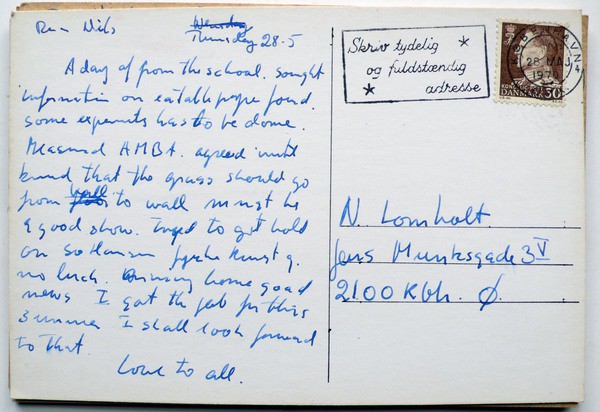 Dear Niels
Wensday
Thursday 28-5
A day of from the school. sought
information on eatable pope found.
some expements has to be done.
Measured AMBA. agreed with
Knud that the grass should go
from floor wall to wall must be
a good show. Tryed to get hold
on So Hansen fyske kunst g.
no luck. coming home good
news I got the job for this
summer I shall look forward
to that.
Love to all.
Skriv tydelig
og fuldstændig
adresse
KØBENHAVN
28 MAJ
1970
DANMARK 50
N. Lomholt
Jens Munksgade 3 V
2100 Kbh. Ø